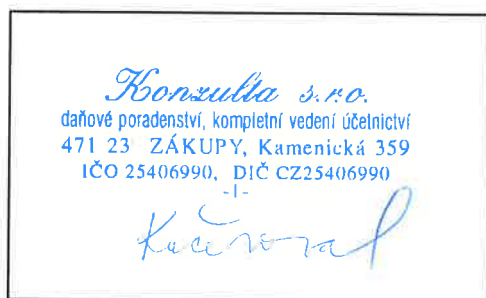 Konzulta s.r.o.
daňové poradenství, kompletní vedení účetnictví
471 23 ZÁKUPY, Kamenická 359
IČO 25406990, DIČ CZ25406990
-1-
Kučerová